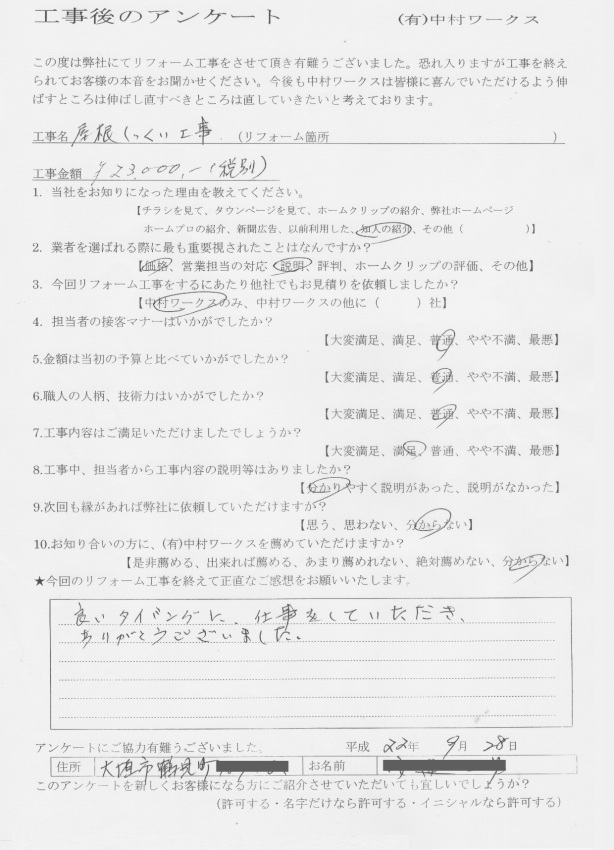 工事後のアンケート　(有)中村ワークス
この度は弊社にてリフォーム工事をさせて頂き有難うございました。恐れ入りますが工事を終え
られてお客様の本音をお聞かせください。今後も中村ワークスは皆様に喜んでいただけるよう伸
ばすところは伸ばし直すべきところは直していきたいと考えております。
工事名 屋根しっくい工事 (リフォーム箇所　)
工事金額 ¥23,000,-(税別)
1. 当社をお知りになった理由を教えてください。
【チラシを見て、タウンページを見て、ホームクリップの紹介、弊社ホームページ
ホームプロの紹介、新聞広告、以前利用した、知人の紹介、その他（　）】
2. 業者を選ばれる際に最も重要視されたことはなんですか？
【価格、営業担当の対応、説明、評判、ホームクリップの評価、その他】
3. 今回リフォーム工事をするにあたり他社でもお見積りを依頼しましたか？
【中村ワークスのみ、中村ワークスの他に（　）社】
4. 担当者の接客マナーはいかがでしたか？
【大変満足、満足、普通、やや不満、最悪】
5.金額は当初の予算と比べていかがでしたか？
【大変満足、満足、普通、やや不満、最悪】
6.職人の人柄、技術力はいかがでしたか？
【大変満足、満足、普通、やや不満、最悪】
7.工事内容はご満足いただけましたでしょうか？
【大変満足、満足、普通、やや不満、最悪】
8.工事中、担当者から工事内容の説明等はありましたか？
【分かりやすく説明があった、説明がなかった】
9.次回も縁があれば弊社に依頼していただけますか？
【思う、思わない、分からない】
10.お知り合いの方に、(有)中村ワークスを薦めていただけますか？
【是非薦める、出来れば薦める、あまり薦めれない、絶対薦めない、分からない】
★今回のリフォーム工事を終えて正直なご感想をお願いいたします。
良いタイミングに、仕事をしていただき、
ありがとうございました。
アンケートにご協力有難うございました。　平成 22年 9月 28日
住所 大垣市鶴見町 お名前
このアンケートを新しくお客様になる方にご紹介させていただいても宜しいでしょうか？
（許可する・名字だけなら許可する・イニシャルなら許可する）